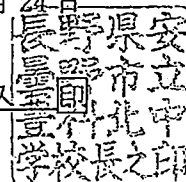 24日
長野県安
曇野市立
豊科北中
学校長之印
印